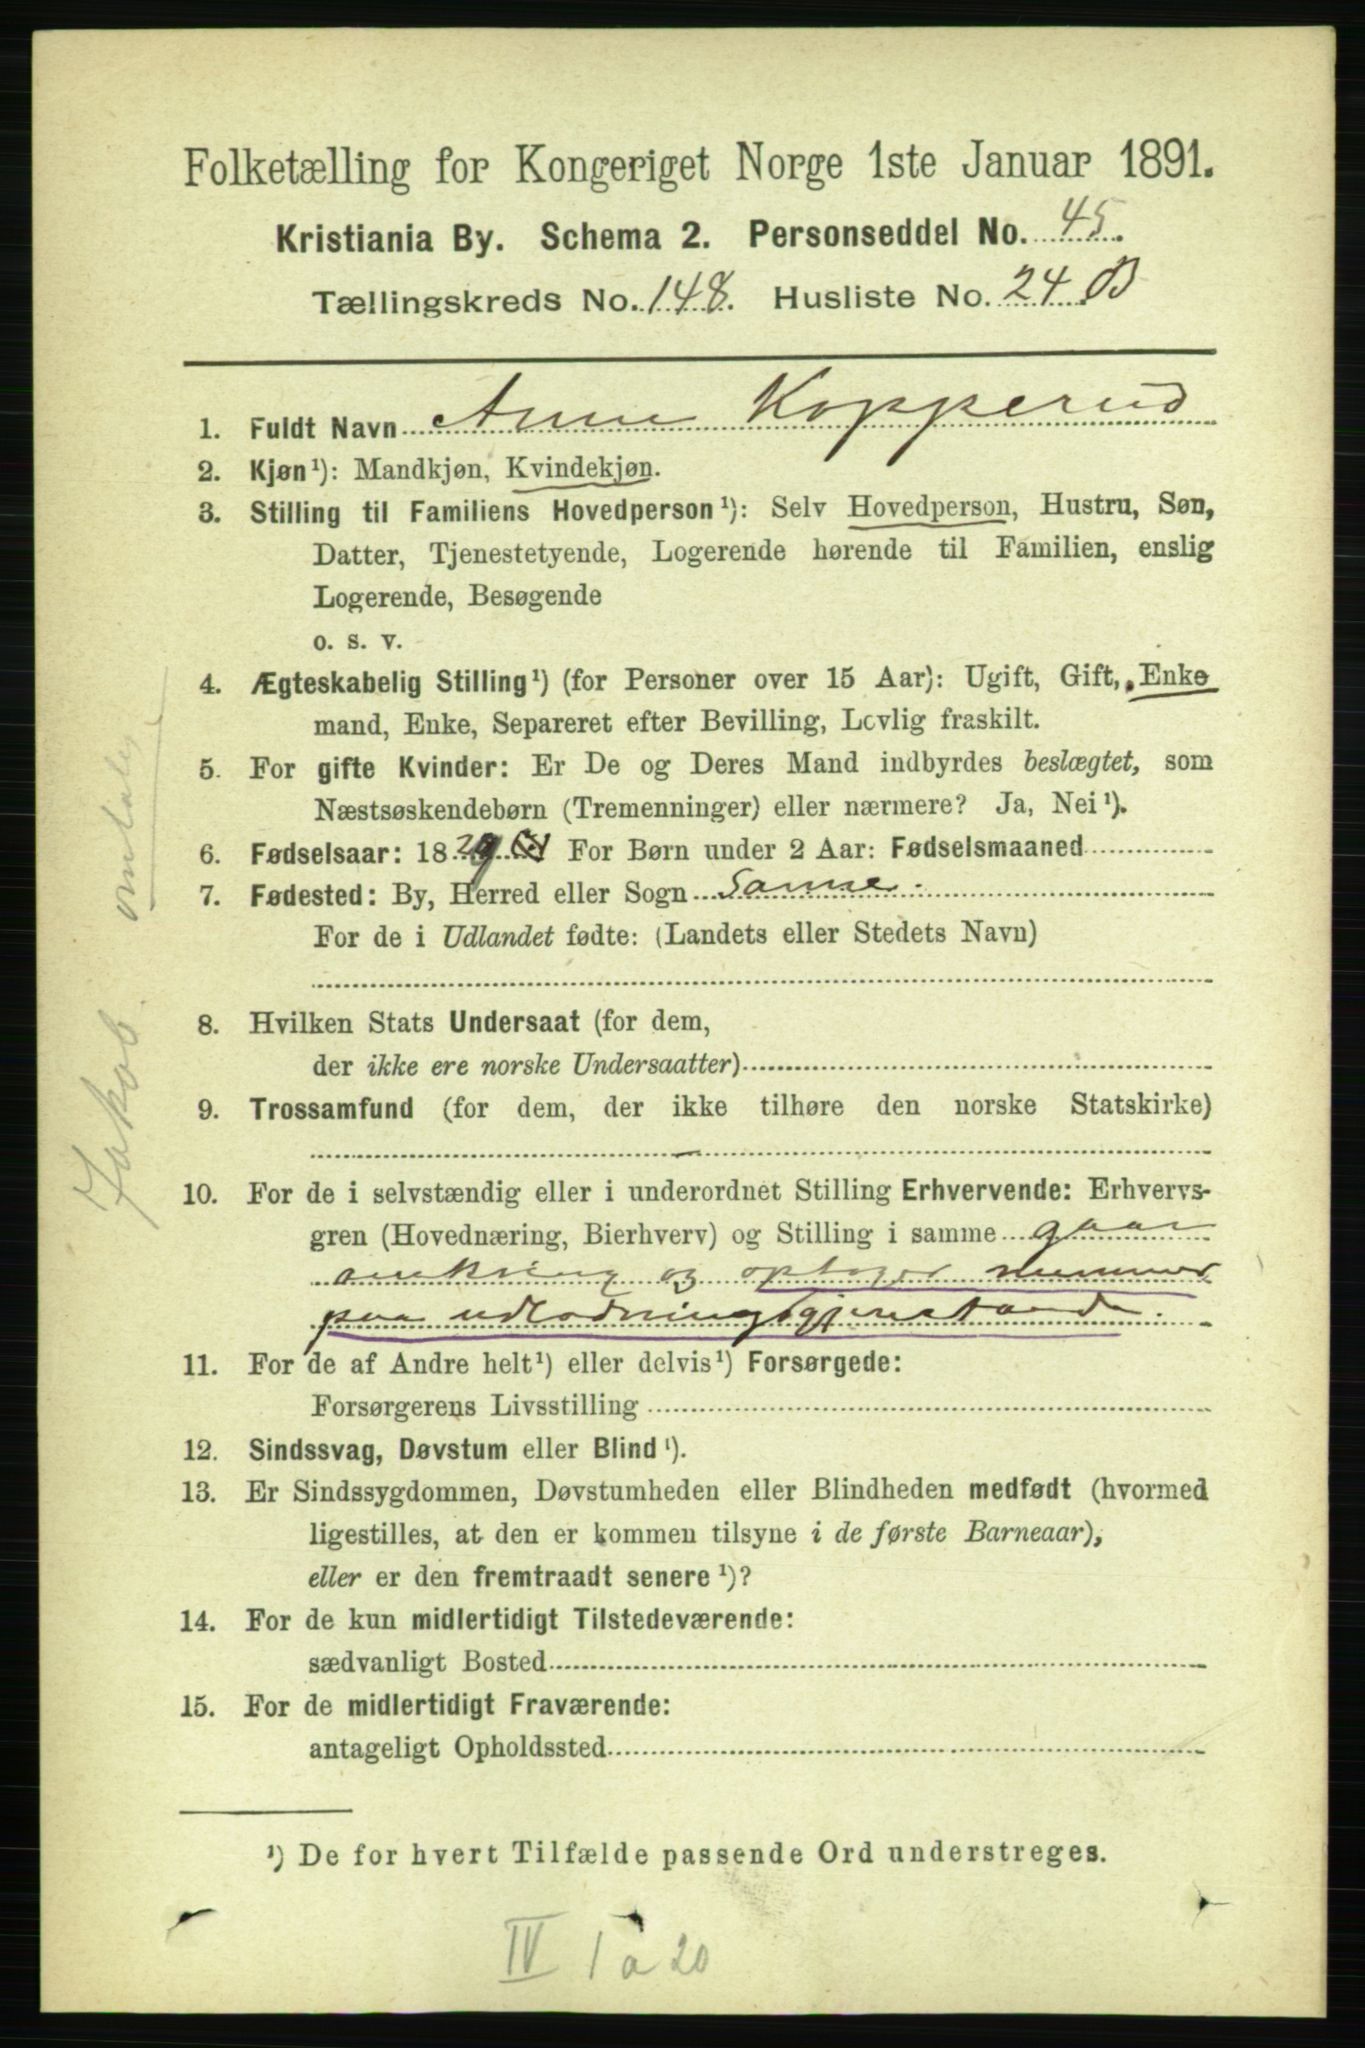 Folketælling for Kongeriget Norge 1ste Januar 1891.
Kristiania By. Schema 2. Personseddel No. 45.
Tællingskreds No. 148. Husliste No. 24 B
1. Fuldt Navn Anne Kopperud
2. Kjøn¹): Mandkjøn, Kvindekjøn.
3. Stilling til Familiens Hovedperson¹): Selv Hovedperson, Hustru, Søn,
Datter, Tjenestetyende, Logerende hørende til Familien, enslig
Logerende, Besøgende
o. s. v.
4. Ægteskabelig Stilling¹) (for Personer over 15 Aar): Ugift, Gift, Enke
mand, Enke, Separeret efter Bevilling, Lovlig fraskilt.
5. For gifte Kvinder: Er De og Deres Mand indbyrdes beslægtet, som
Næstsøskendebørn (Tremenninger) eller nærmere? Ja, Nei¹).
6. Fødselsaar: 1829 For Børn under 2 Aar: Fødselsmaaned
7. Fødested: By, Herred eller Sogn Sanne.
For de i Udlandet fødte: (Landets eller Stedets Navn)
8. Hvilken Stats Undersaat (for dem,
der ikke ere norske Undersaatter)
9. Trossamfund (for dem, der ikke tilhøre den norske Statskirke)
10. For de i selvstændig eller i underordnet Stilling Erhvervende: Erhvervs-
gren (Hovednæring, Bierhverv) og Stilling i samme gaar
omkring og optager nummer
paa udlodningsgjenstande.
11. For de af Andre helt¹) eller delvis¹) Forsørgede:
Forsørgerens Livsstilling
12. Sindssvag, Døvstum eller Blind¹).
13. Er Sindssygdommen, Døvstumheden eller Blindheden medfødt (hvormed
ligestilles, at den er kommen tilsyne i de første Barneaar),
eller er den fremtraadt senere¹)?
14. For de kun midlertidigt Tilstedeværende:
sædvanligt Bosted
15. For de midlertidigt Fraværende:
antageligt Opholdssted
¹) De for hvert Tilfælde passende Ord understreges.
IV 1 a 20
Jakob. omtales